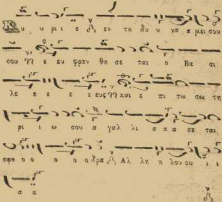 υ ρι ε εν τη δυ υ να α μει σου
σου ευ φραν θη σε ται ο Βα σι
λε ε ε ευς και ε πι τω σω τη
ρι ι ω σου α γαλ λι α σε ται
σφο ο ο ο ο δρα Αλ λη λου ι ι
α α